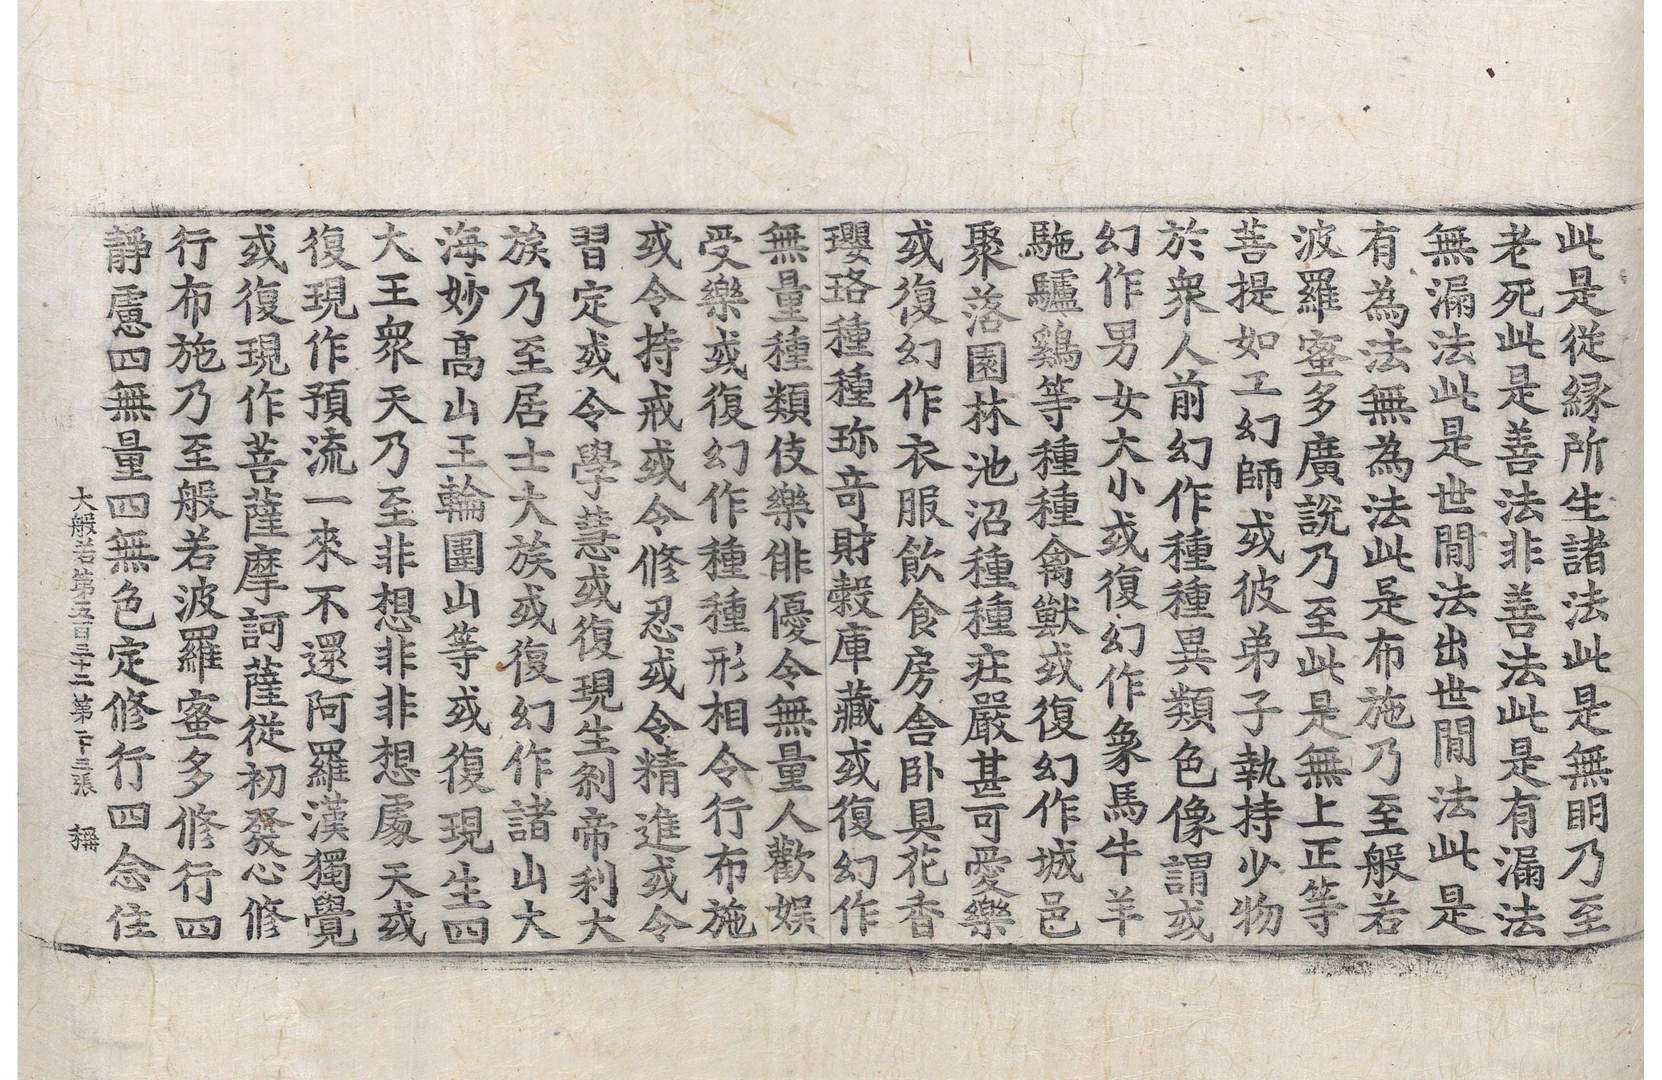 此是從縁所生諸法此是無明乃至
老死此是善法非善法此是有漏法
無漏法此是世閒法出世閒法此是
有為法無為法此是布施乃至般若
波羅蜜多廣說乃至此是無上正等
菩提如工幻師或彼弟子執持少物
於衆人前幻作種種異類色像謂或
幻作男女大小或復幻作象馬牛羊
駞驢鷄等種種禽獸或復幻作城邑
聚落園林池沼種種莊嚴甚可愛樂
或復幻作衣服飮食房舍卧具花香
瓔珞種種珎竒財穀庫藏或復幻作
無量種類伎樂俳優令無量人歡娛
受樂或復幻作種種形相令行布施
或令持戒或令修忍或令精進或令
習定或令學慧或復現生剎帝利大
族乃至居士大族或復幻作諸山大
海妙髙山王輪圍山等或復現生四
大王衆天乃至非想非非想處天或
復現作預流一來不還阿羅漢獨覺
或復現作菩薩摩訶薩從初發心修
行布施乃至般若波羅蜜多修行四
靜慮四無量四無色定修行四念住
大般若第五百三十二 第二十三張 㮣